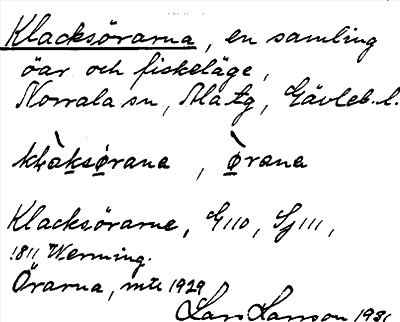 Klacksörarna, en samling
öar och fiskeläge,
Norrala sn, Ala tg, Gävleb. l.
kḷàksørana, ørana
Klacksörarne, G110, Sj111,
1811, Werming.
Örarna, mtl 1929
Lars Larsson 193